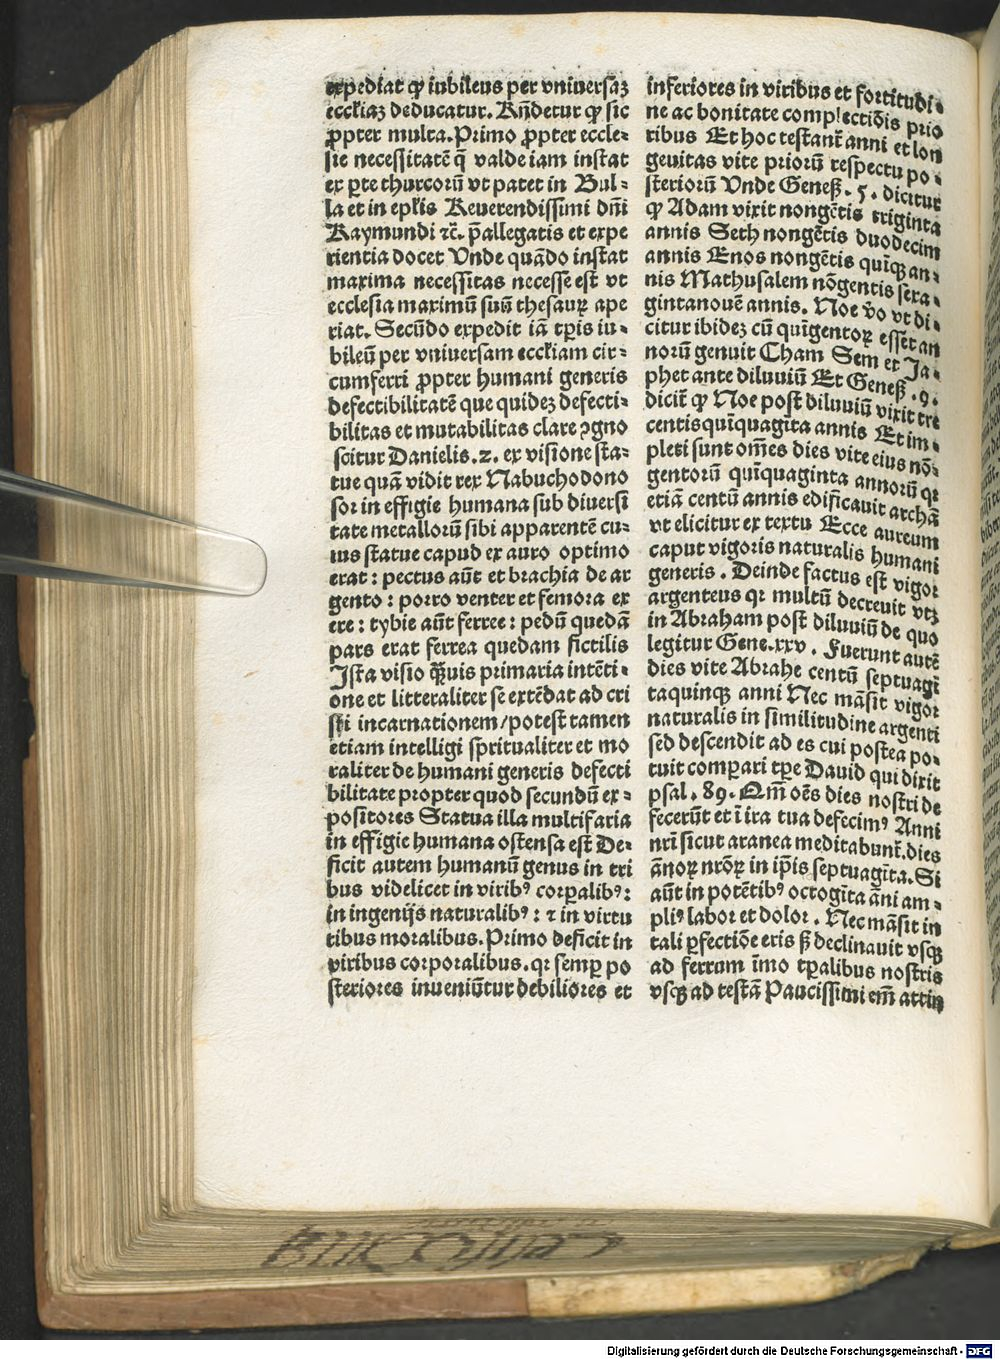 expediat ꝙ iubileus per vniuersaꝫ
eccłiaꝫ deducatur. Rn̄detur ꝙ sic
ꝓpter multa. Primo ꝓpter eccle⸗
sie necessitatē q̄ valde iam instat
ex ꝑte thurcorū vt patet in Bul⸗
la et in epłis Reuerendissimi dn̄i
Raymundi ⁊c̄. p̄allegatis et expe
rientia docet Unde quādo instat
maxima necessitas necesse est vt
ecclesia maximū suū thesauꝝ ape
riat. Secūdo expedit iā tꝑis iu⸗
bileū per vniuersam eccłiam cir⸗
cumferri ꝓpter humani generis
defectibilitatē que quideꝫ defecti⸗
bilitas et mutabilitas clare ꝯgno
scitur Danielis .2. ex visione sta⸗
tue quā vidit rex Nabuchodono
sor in effigie humana sub diuersi
tate metallorū sibi apparentē cu⸗
ius statue capud ex auro optimo
erat : pectus aūt et brachia de ar
gento : porro venter et femora ex
ere : tybie aūt ferree : pedū quedā
pars erat ferrea quedam fictilis
Ista visio q̄uis primaria intēti⸗
one et litteraliter se extēdat ad cri
sti incarnationem/potest tamen
etiam intelligi spritualiter et mo
raliter de humani generis defecti
bilitate propter quod secundū ex⸗
positores Statua illa multifaria
in effigie humana ostensa est De⸗
ficit autem humanū genus in tri
bus videlicet in viribꝰ corꝑalibꝰ:
in ingenijs naturalibꝰ : ⁊ in virtu
tibus moralibus. Primo deficit in
viribus corporalibus. qr semꝑ po
steriores inueniūtur debiliores et
inferiores in viribus et fortitudi⸗
ne ac bonitate complectiōis prio
ribus Et hoc testant̄ anni et lon
geuitas vite priorū respectu po⸗
steriorū Unde Geneß. 5. dicitur
ꝙ Adam vixit nongētis triginta
annis Seth nongētis duodecim
annis Enos nongētis quīqꝫ an⸗
nis Mathusalem nōgentis sexa⸗
gintanouē annis. Noe v̄o vt di⸗
citur ibideꝫ cū quīgentoꝝ esset an
norū genuit Cham Sem et Ja⸗
phet ante diluuiū Et Geneß .9.
dicit̄ ꝙ Noe post diluuiū vixit tre
centis quīquagīta annis Et im⸗
pleti sunt om̄es dies vite eius nō⸗
gentorū quīquaginta annorū qr
etiā centū annis edificauit archā
vt elicitur ex textu Ecce aureum
caput vigoris naturalis humani
generis . Deinde factus est vigor
argenteus qr multū decreuit vtꝫ
in Abraham post diluuiū de quo
legitur Gene. xxv . Fuerunt autē
dies vite Abrahe centū septuagī
taquinqꝫ anni Nec māsit vigor
naturalis in similitudine argenti
sed descendit ad es cui postea po⸗
tuit comꝑari tꝑe Dauid qui dixit
psal. 89. Qm̄ oēs dies nostri de
fecerūt et ī ira tua defecimꝰ Anni
nr̄i sicut aranea meditabunt̄. dies
ānoꝝ nr̄oꝝ in ip̄is septuagīta. Si
aūt in potētibꝰ octogīta āni am⸗
pliꝰ labor et dolor . Nec māsit in
tali ꝑfectiōe eris ß declinauit vsqꝫ
ad ferrum īmo tꝑalibus nostris
vsqꝫ ad testā Paucissimi em̄ attin
Digitalisierung gefördert durch die Deutsche Forschungsgemeinschaft - DFG